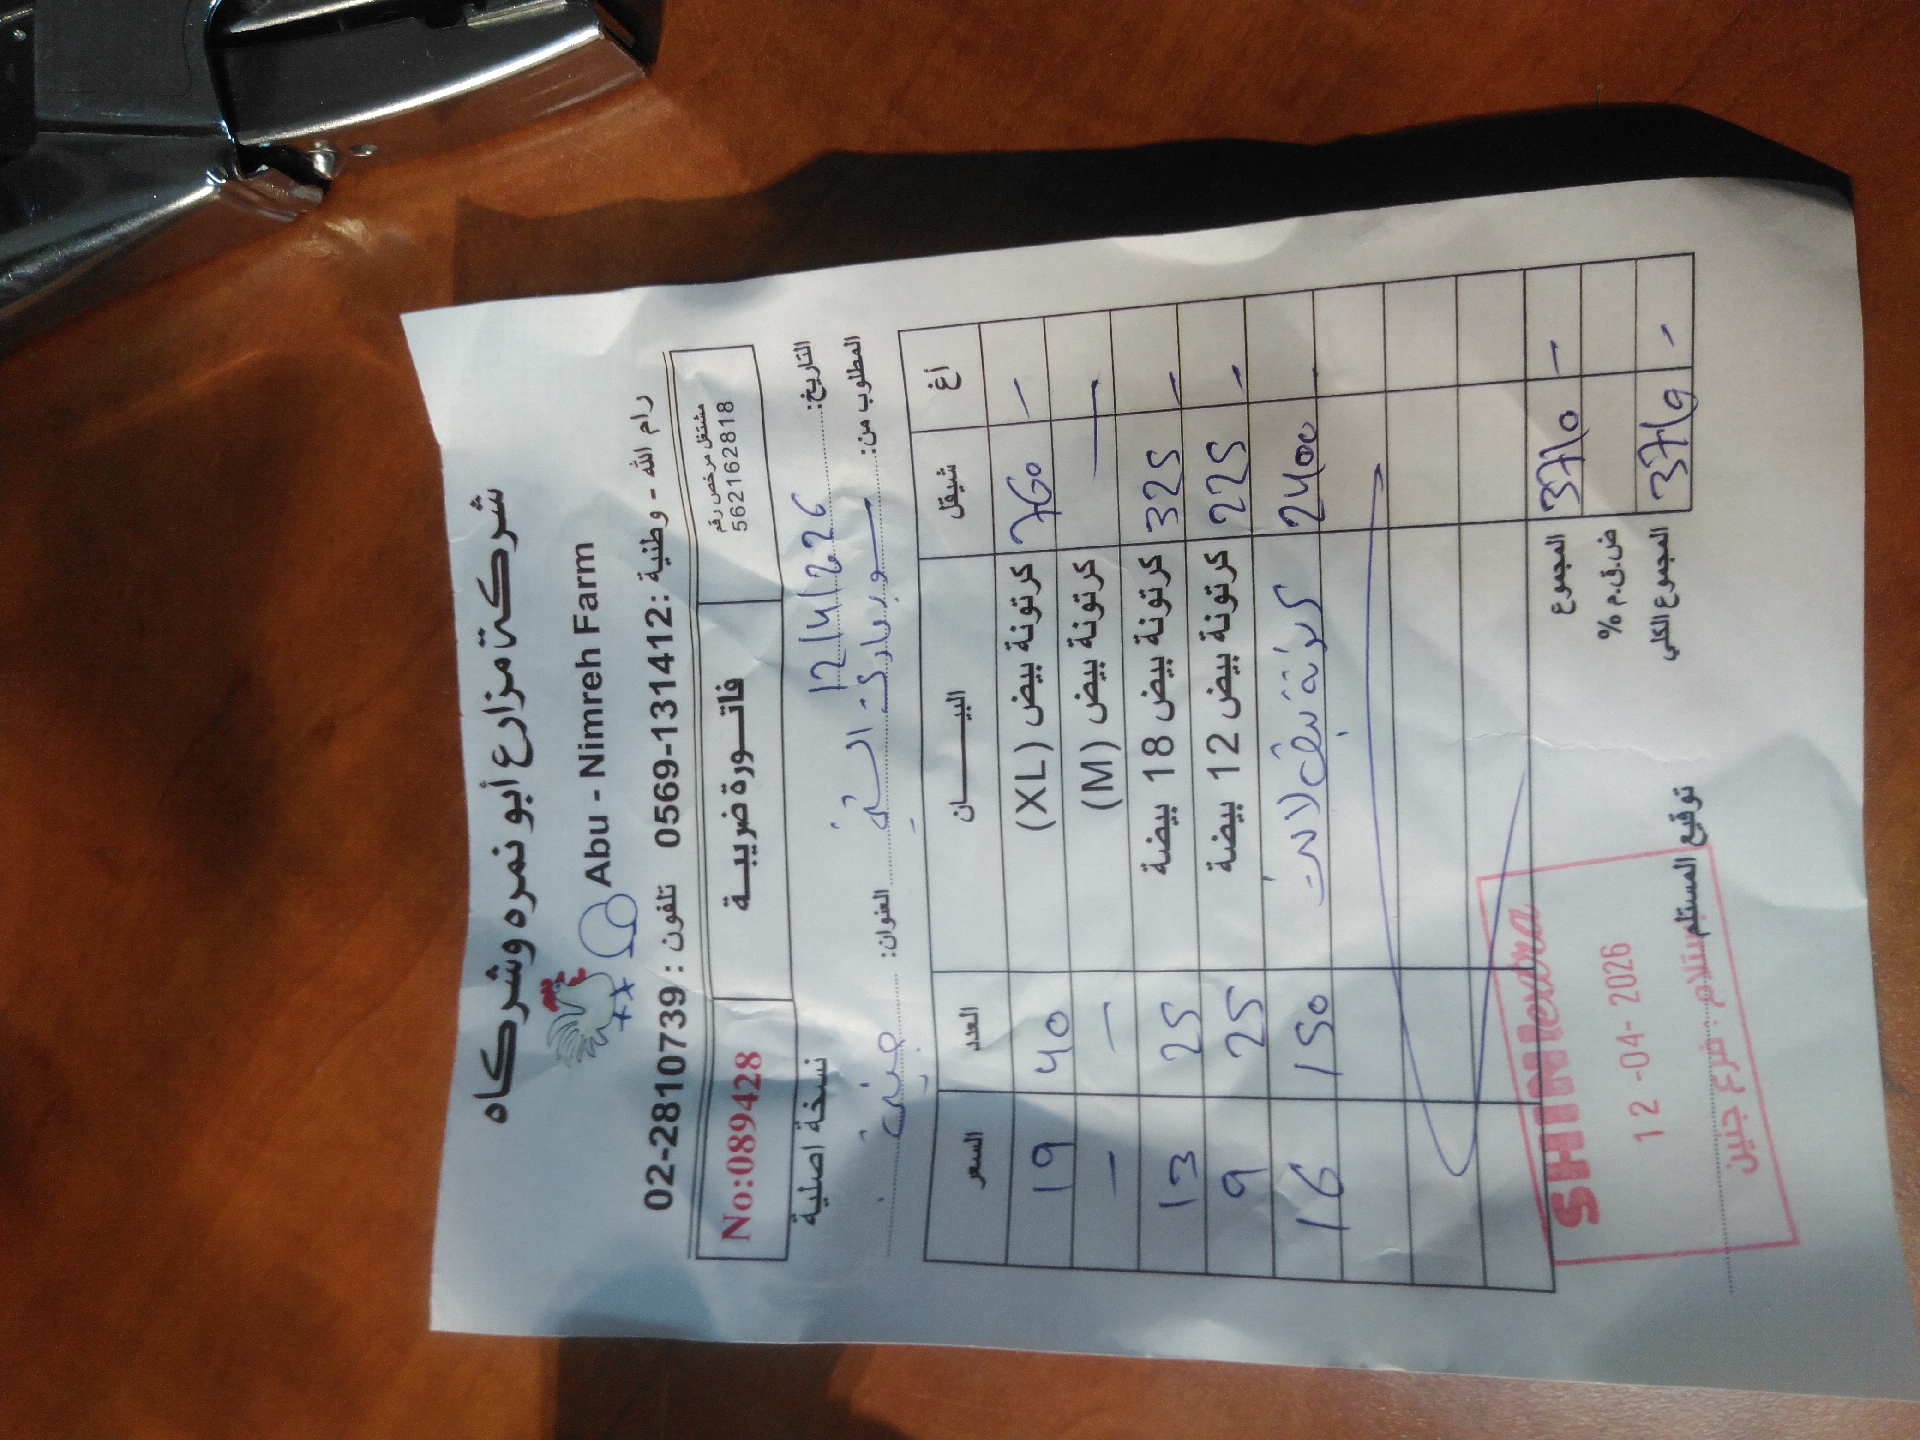 شركة مزارع أبو نمره وشركاه
Abu - Nimreh Farm
رام الله - وطنية : 0569-131412 تلفون : 02-2810739
مشتغل مرخص رقم
562162818
فاتـــورة ضريبــة
No:089428
التاريخ: 12/4/226
نسخة اصلية
المطلوب من: سوبر ماركت
العنوان: جنين
أغ شيقل البيـــــــان العدد السعر
- 760 كرتونة بيض (XL) 40 19
- كرتونة بيض (M) - -
- 325 كرتونة بيض 18 بيضة 25 13
- 225 كرتونة بيض 12 بيضة 25 9
2400 150 16
المجموع 3710 -
ض.ق.م %
المجموع الكلي 3710 -
توقيع المستلم
SHINI extra
12 -04- 2026
استلام: فرع جنين